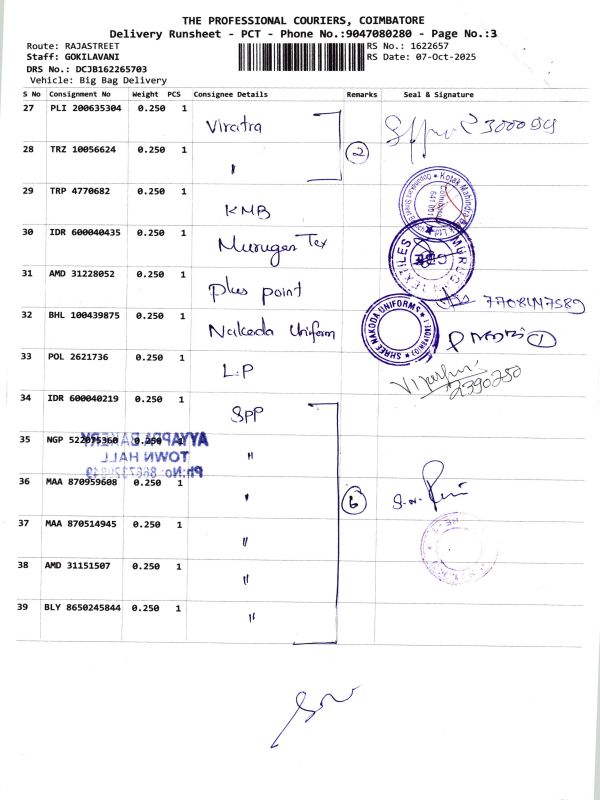 THE PROFESSIONAL COURIERS, COIMBATORE
Delivery Runsheet - PCT - Phone No.:9047080280 - Page No.:3
Route: RAJASTREET
Staff: GOKILAVANI
DRS No.: DCJB162265703
Vehicle: Big Bag Delivery
RS No.: 1622657
RS Date: 07-Oct-2025
S No Consignment No Weight PCS Consignee Details Remarks Seal & Signature
27 PLI 200635304 0.250 1 Viratra
28 TRZ 10056624 0.250 1 " 2
29 TRP 4770682 0.250 1 KMB
30 IDR 600040435 0.250 1 Murugan Tex
MURUGAN TEXTILES
31 AMD 31228052 0.250 1 plus point
32 BHL 100439875 0.250 1 Nakoda Uniform
SHREE NAKODA UNIFORMS
33 POL 2621736 0.250 1 L.P
34 IDR 600040219 0.250 1 SPP
35 NGP 522075360 0.250 1 "
AYYAPPA BAKERY
TOWN HALL
36 MAA 870959608 0.250 1 " 6
37 MAA 870514945 0.250 1 "
38 AMD 31151507 0.250 1 "
39 BLY 8650245844 0.250 1 "